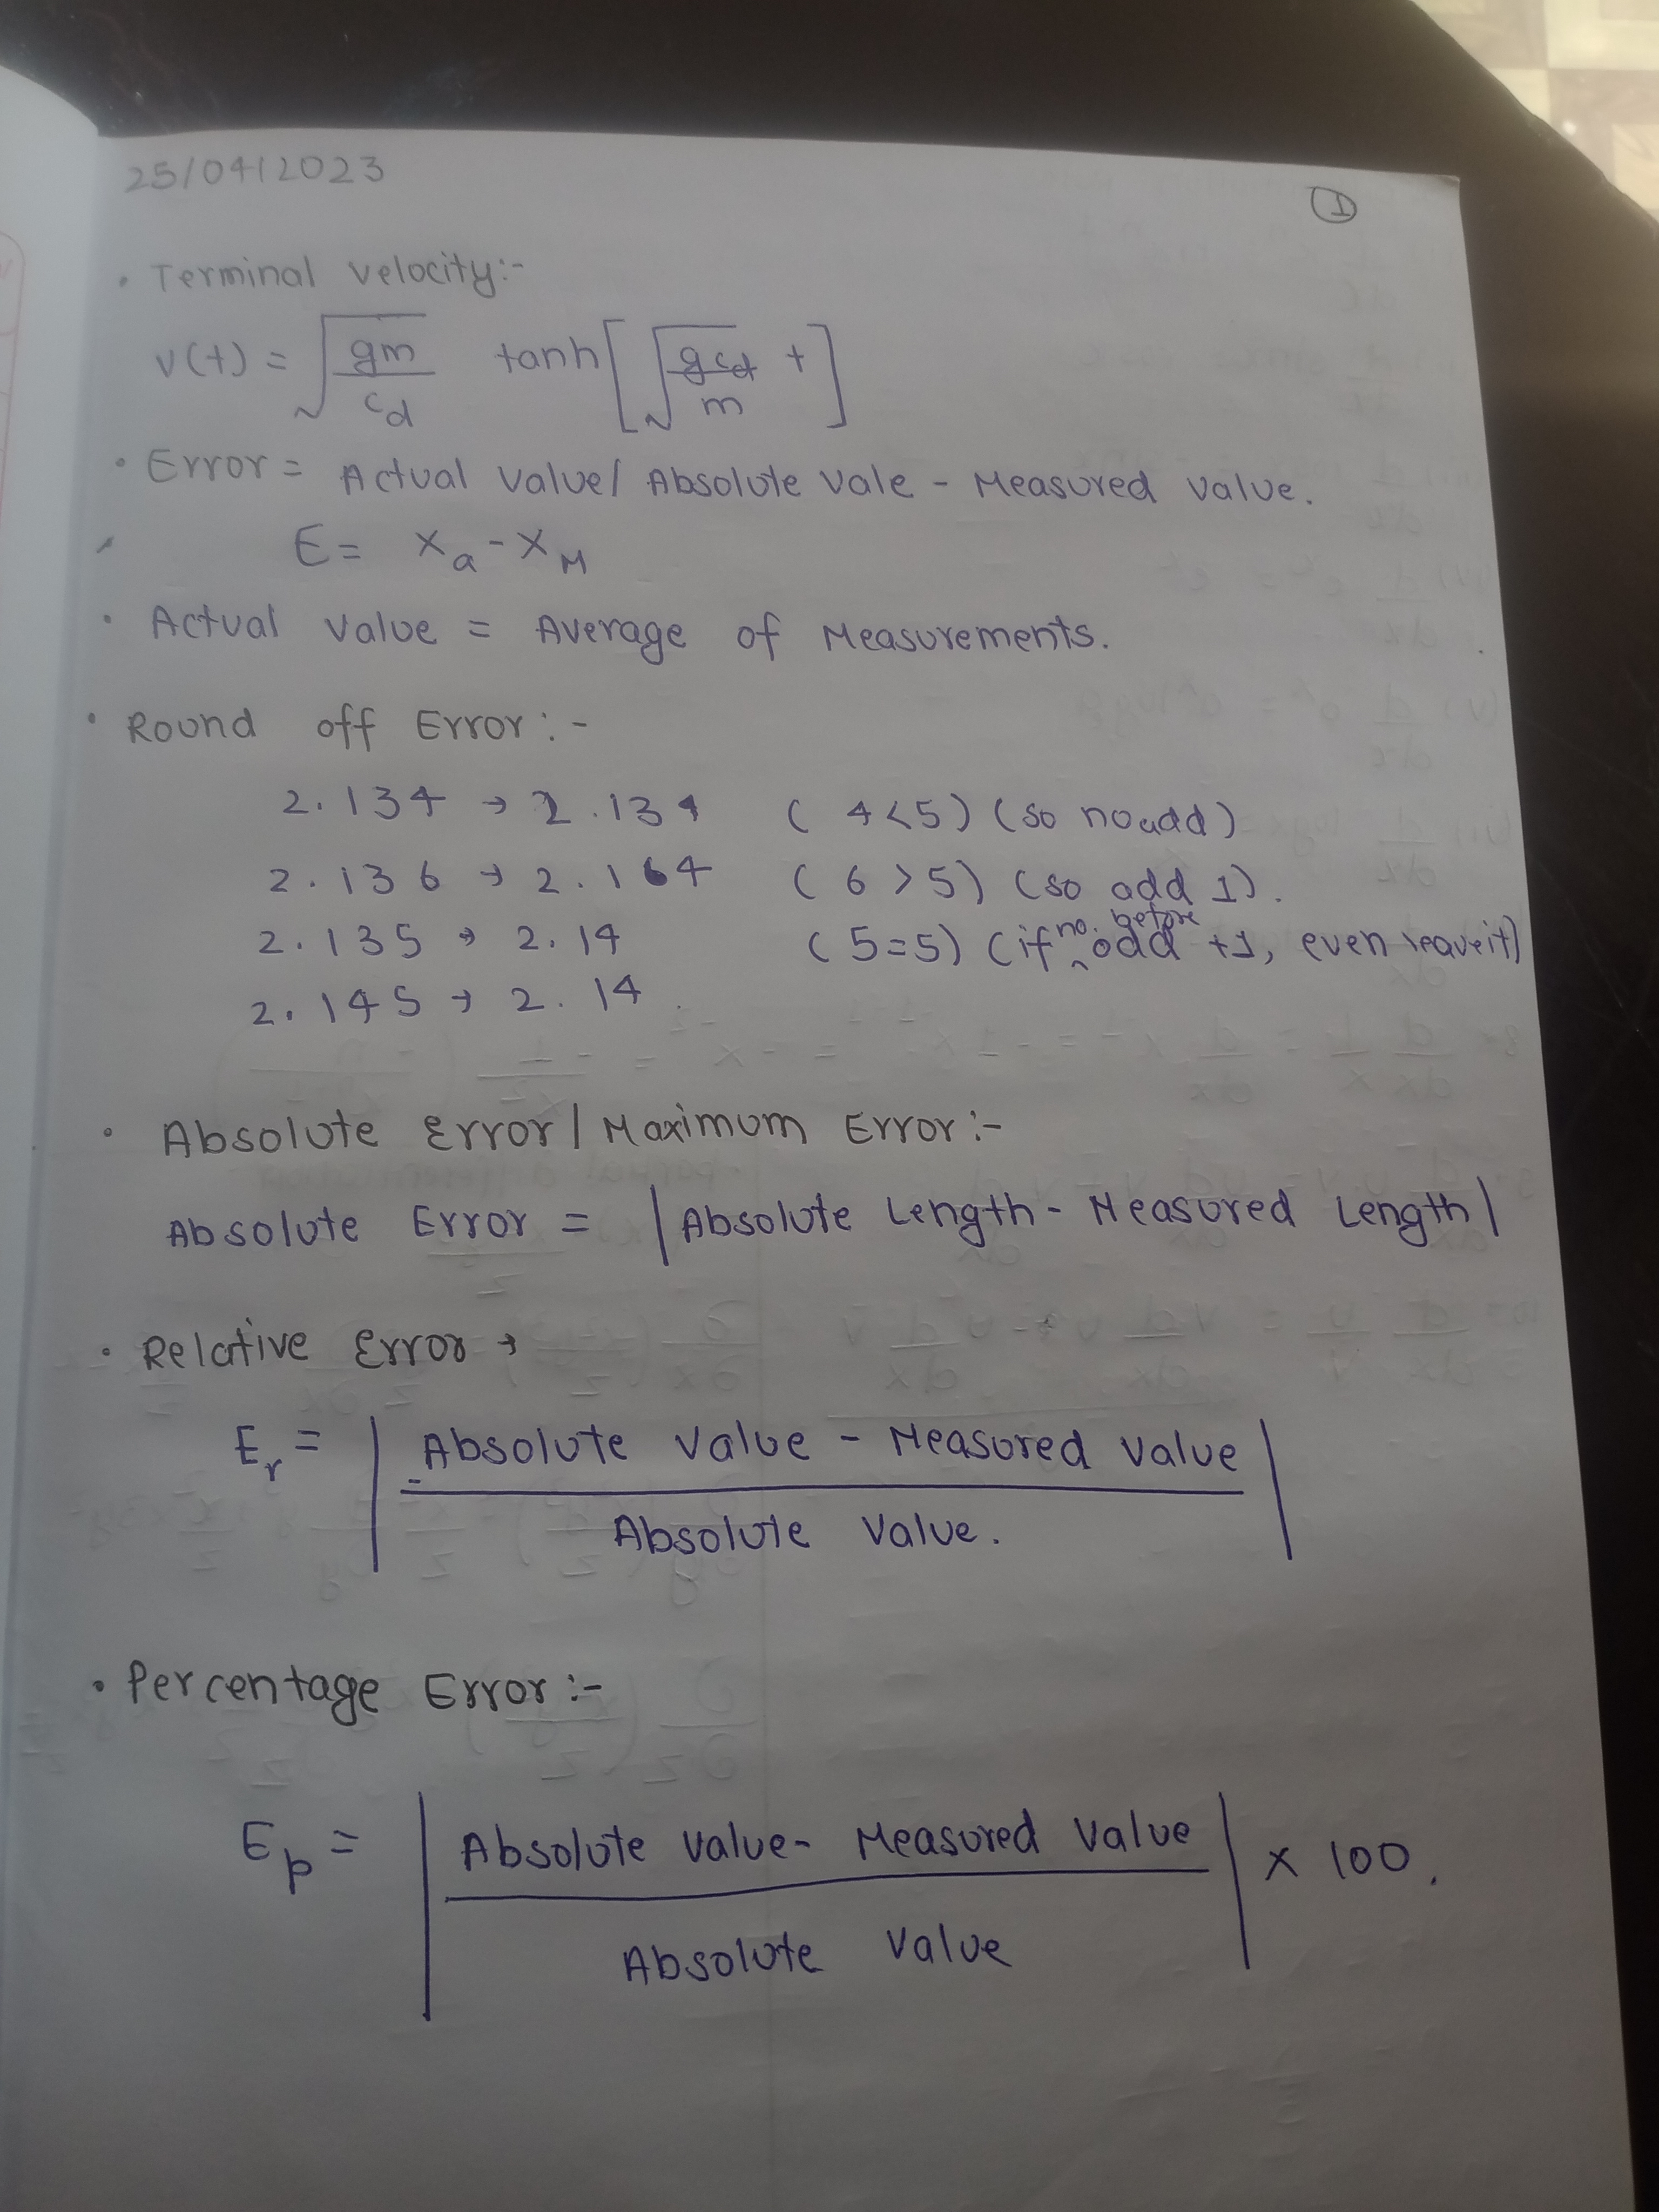 25/04/2023
1
• Terminal velocity:-
v(t) = √(gm/cd) tanh[√(gcd/m) t]
• Error = Actual value/ Absolute vale - Measured value.
E = Xa - XM
• Actual value = Average of Measurements.
• Round off Error:-
2.134 → 2.134 (4<5) (so no add)
2.136 → 2.164 (6>5) (so add 1).
2.135 → 2.14 (5=5) (if no. before odd +1, even leave it)
2.145 → 2.14.
• Absolute Error/Maximum Error:-
Absolute Error = |Absolute Length - Measured Length|
• Relative Error →
Er = | Absolute value - Measured value
Absolute value. |
• Percentage Error:-
Ep = | Absolute value - Measured value | × 100.
Absolute value